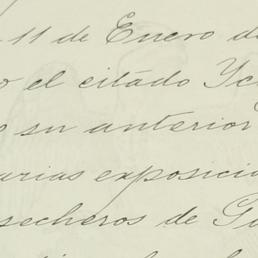 11 de Enero de
el citado
su anterior
arias exposicio
secheros de